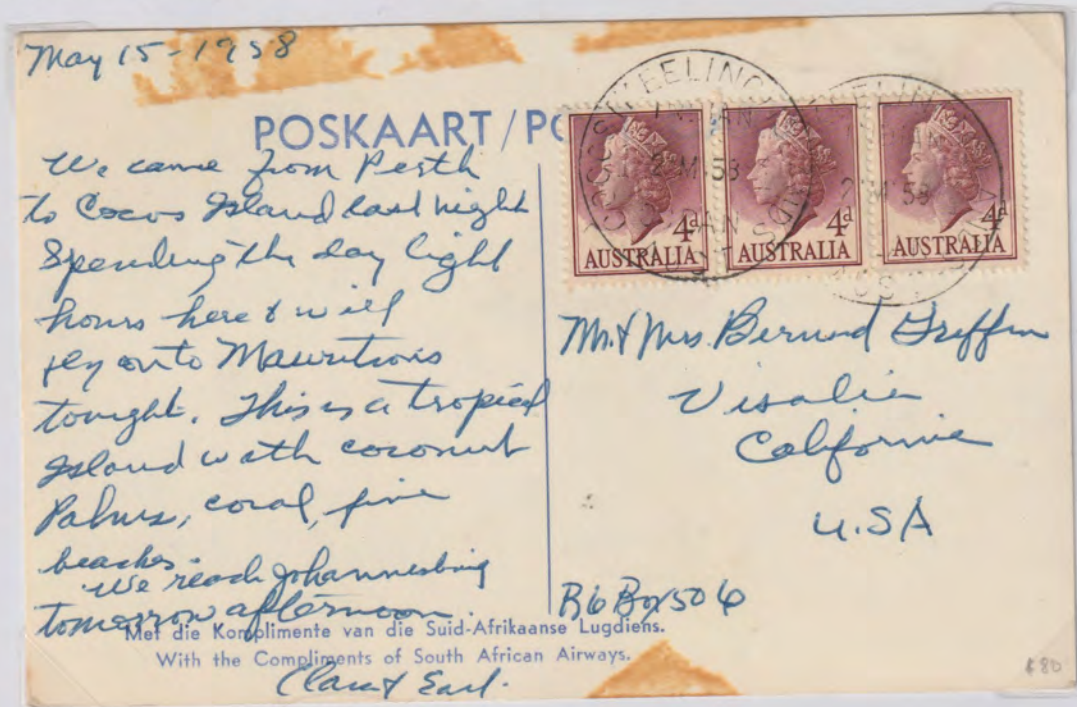 May 15-1958
POSKAART/PO
We came from Perth
to Cocos Island last night
Spending the day light
hours here & will
fly on to Mauritious
tonight. This is a tropical
Island with coconut
Palms, coral, fine
beaches.
We reach Johannesburg
tomorrow afternoon.
Met die Komplimente van die Suid-Afrikaanse Lugdiens.
With the Compliments of South African Airways.
Clara & Earl.
4d
AUSTRALIA
4d
AUSTRALIA
4d
AUSTRALIA
KEELING
58
58
Mr & Mrs. Bernard Griffin
Visalia
California
U.S.A
Box 506
$80